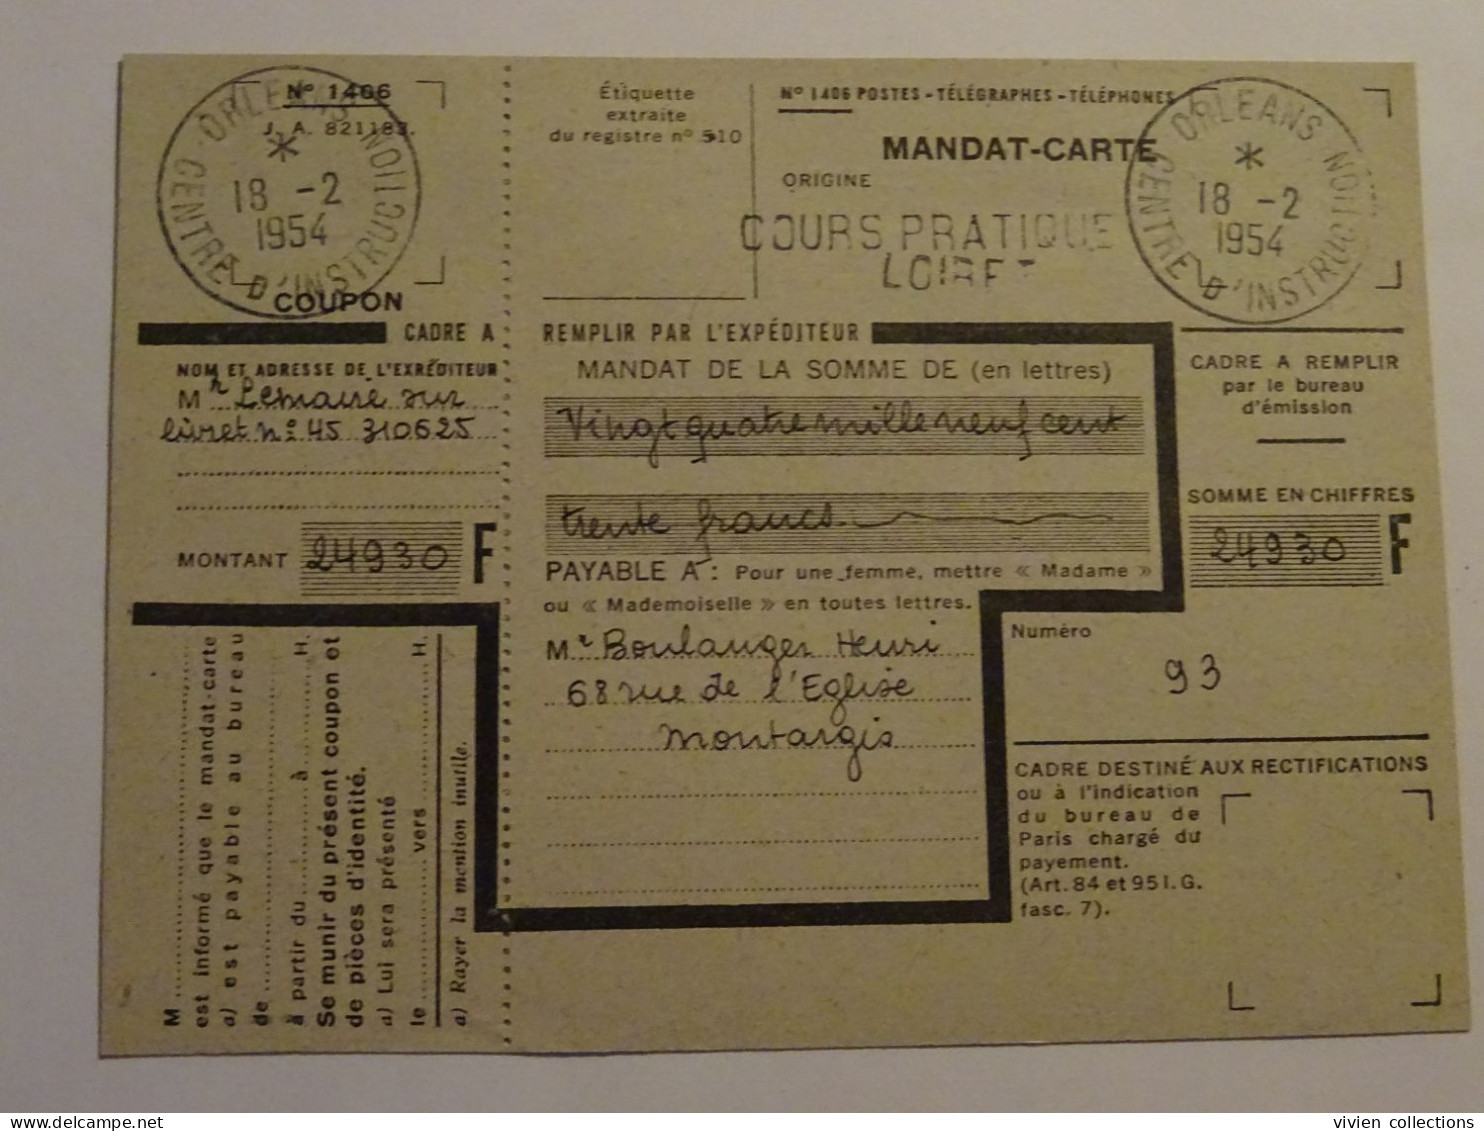 Nº 1406
J. A. 821183.
ORLEANS
CENTRE D'INSTRUCTION
18 -2
1954
COUPON
CADRE A
NOM ET ADRESSE DE L'EXPÉDITEUR
Mr Lemaire sur
livret nº 45 310625
MONTANT 24930 F
Étiquette
extraite
du registre nº 510
Nº 1406 POSTES - TÉLÉGRAPHES - TÉLÉPHONES
MANDAT-CARTE
ORIGINE
COURS PRATIQUE
LOIRET
ORLEANS
CENTRE D'INSTRUCTION
18 -2
1954
REMPLIR PAR L'EXPÉDITEUR
MANDAT DE LA SOMME DE (en lettres)
Vingt quatre mille neuf cent
trente francs
PAYABLE A : Pour une femme, mettre « Madame »
ou « Mademoiselle » en toutes lettres.
Mr Boulanger Henri
68 rue de l'Eglise
Montargis
CADRE A REMPLIR
par le bureau
d'émission
SOMME EN CHIFFRES
24930 F
Numéro
93
CADRE DESTINÉ AUX RECTIFICATIONS
ou à l'indication
du bureau de
Paris chargé du
payement.
(Art. 84 et 95 I. G.
fasc. 7).
M
est informé que le mandat-carte
a) est payable au bureau
de
à partir du à H.
Se munir du présent coupon et
de pièces d'identité.
a) Lui sera présenté
le vers H.
a) Rayer la mention inutile.
vivien collections